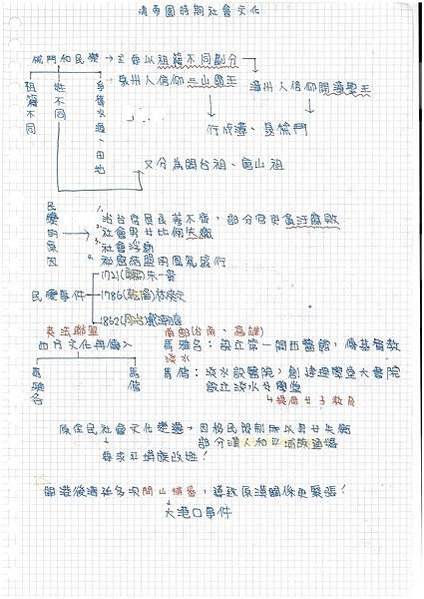 清帝國時期社會文化
械鬥和民變→主要以祖籍不同劃分
祖籍不同
姓不同
爭奪水源、田地
泉州人信仰三山國王
漳州人信仰開漳聖王
行成漳、泉械鬥
又分為開台祖、唐山祖
民變的原因
1. 治台官員良莠不齊，部分官吏貪汙腐敗
2. 社會男女比例失衡
3. 社會浮動
4. 秘密結盟的風氣盛行
民變事件
1721 朱一貴
1786 林爽文
1862 戴潮春
英法聯軍
西方文化再傳入
馬雅各
馬偕
南部(台南、高雄)
馬雅各：設立第一間西醫館，傳基督教
淡水
馬偕：淡水設醫院，創建理學堂大書院
設立淡水女學堂
→提倡女子教育
原住民社會文化變遷→因移民限制所以男女失衡
部分漢人和平埔族通婚
要求平埔族改姓！
開港後清廷多次開山撫番，導致原漢關係更緊張！
大港口事件